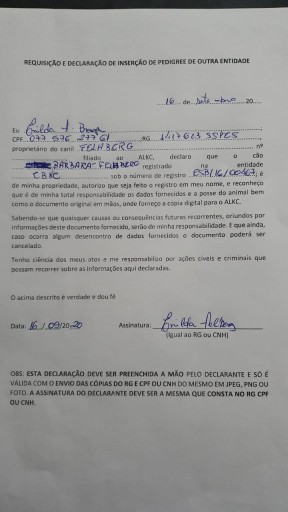 REQUISIÇÃO E DECLARAÇÃO DE INSERÇÃO DE PEDIGREE DE OUTRA ENTIDADE
16 de setembro 20
Eu Enilda
CPF 077 576 277 61 RG 1.117.623 SSPES
proprietário do canil FELHBERG nº
filiado ao ALKC, declaro que o cão
BARBARA FELHBERG registrado na entidade
CBKC sob o número de registro é
de minha propriedade, autorizo que seja feito o registro em meu nome, e reconheço
que é de minha total responsabilidade os dados fornecidos e a posse do animal bem
como o documento original em mãos, onde forneço a cópia digital para o ALKC.
Sabendo-se que quaisquer causas ou consequências futuras recorrentes, oriundos por
informações deste documento fornecido, serão de minha responsabilidade. E que ainda,
caso ocorra algum desencontro de dados fornecidos o documento poderá ser
cancelado.
Tenho ciência dos meus atos e me responsabilizo por ações cíveis e criminais que
possam recorrer sobre as informações aqui declaradas.
O acima descrito é verdade e dou fé
Data: 16 / 09/2020 Assinatura: Enilda
(Igual ao RG ou CNH)
OBS: ESTA DECLARAÇÃO DEVE SER PREENCHIDA A MÃO PELO DECLARANTE E SÓ É
VÁLIDA COM O ENVIO DAS CÓPIAS DO RG E CPF OU CNH DO MESMO EM JPEG, PNG OU
FOTO. A ASSINATURA DO DECLARANTE DEVE SER A MESMA QUE CONSTA NO RG CPF
OU CNH.